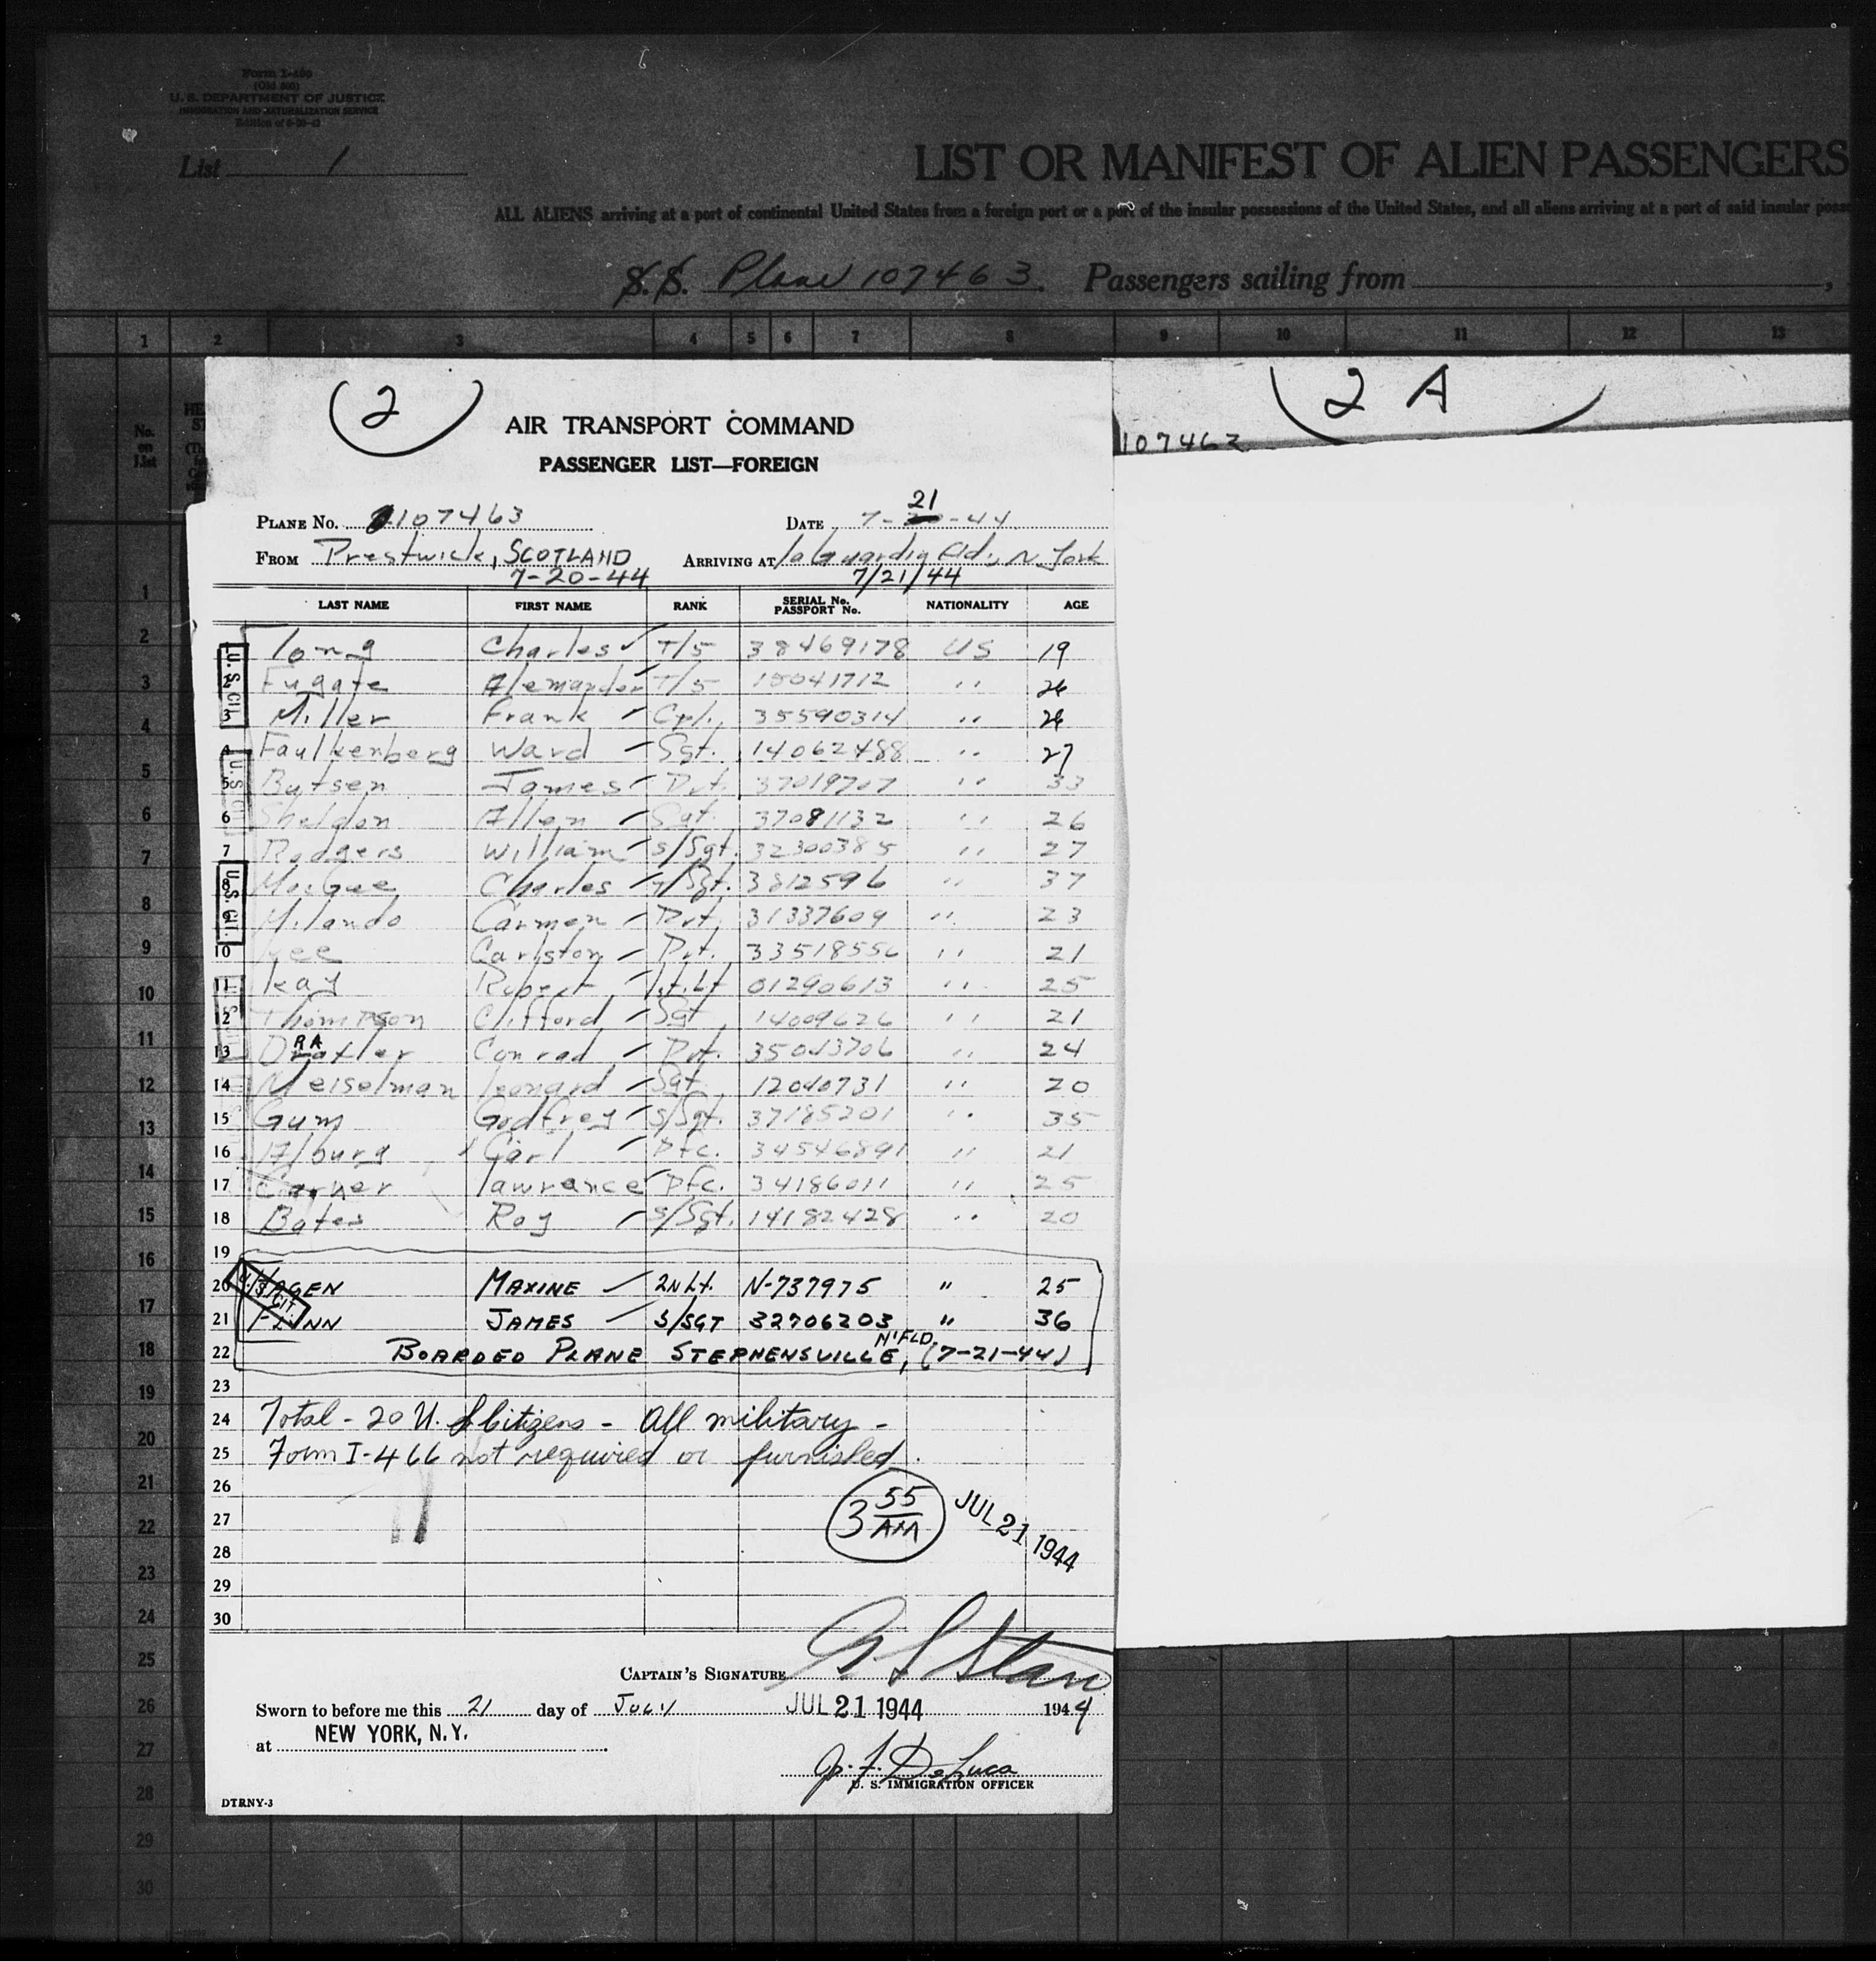 Form I-466
(Old 500)
U. S. DEPARTMENT OF JUSTICE
IMMIGRATION AND NATURALIZATION SERVICE
List 1
LIST OR MANIFEST OF ALIEN PASSENGERS
ALL ALIENS arriving at a port of continental United States from a foreign port or a port of the insular possessions of the United States, and all aliens arriving at a port of said insular
S.S. Plane 107463 Passengers sailing from
1 2 3 4 5 6 7 8 9 10 11 12 13
No. on List
(2)
(2 A)
AIR TRANSPORT COMMAND
PASSENGER LIST—FOREIGN
PLANE No. 107463 DATE 7-21-44
FROM Prestwick, SCOTLAND ARRIVING AT la Guardia Fld., N. York
7-20-44 7/21/44
LAST NAME FIRST NAME RANK SERIAL No. PASSPORT No. NATIONALITY AGE
1 long Charles T/5 38469178 US 19
2 Fugate Alexander T/5 15041712 " 26
3 Miller Frank Cpl. 35590314 " 26
4 Faulkenberg Ward Sgt. 14062488 " 27
5 Butsen James Pvt. 37019707 " 33
6 Sheldon Allen Sgt. 37081132 " 26
7 Rodgers William S/Sgt. 32300385 " 27
8 Charles T/Sgt. 3812596 " 37
9 Milando Carmen Pvt. 31337609 " 23
10 Lee Carlston Pvt. 33518556 " 21
11 kay Rupert 1st.Lt 01290613 " 25
12 Thompson Clifford Sgt 14009626 " 21
13 Draxler Conrad Pvt. 35043706 " 24
14 Meiselman leonard Sgt 12040731 " 20
15 Gum Godfrey S/Sgt. 37185201 " 35
16 Alburg Carl Pfc. 34546891 " 21
17 Carner lawrance Pfc. 34186011 " 25
18 Bates Roy S/Sgt. 14182428 " 20
19
20 HAGEN MAXINE 2N Lt. N-737975 " 25
21 FLYNN JAMES S/SGT 32706203 " 36
22 BOARDED PLANE STEPHENSVILLE, N'FLD. (7-21-44)
23
24 Total - 20 U. S Citizens - All military -
25 Form I-466 not required or furnished.
26
27 3 55 AM JUL 21 1944
28
29
30
CAPTAIN'S SIGNATURE
Sworn to before me this 21 day of JULY JUL 21 1944 1944
at NEW YORK, N.Y.
J. F. DeLuca
U. S. IMMIGRATION OFFICER
DTRNY-3